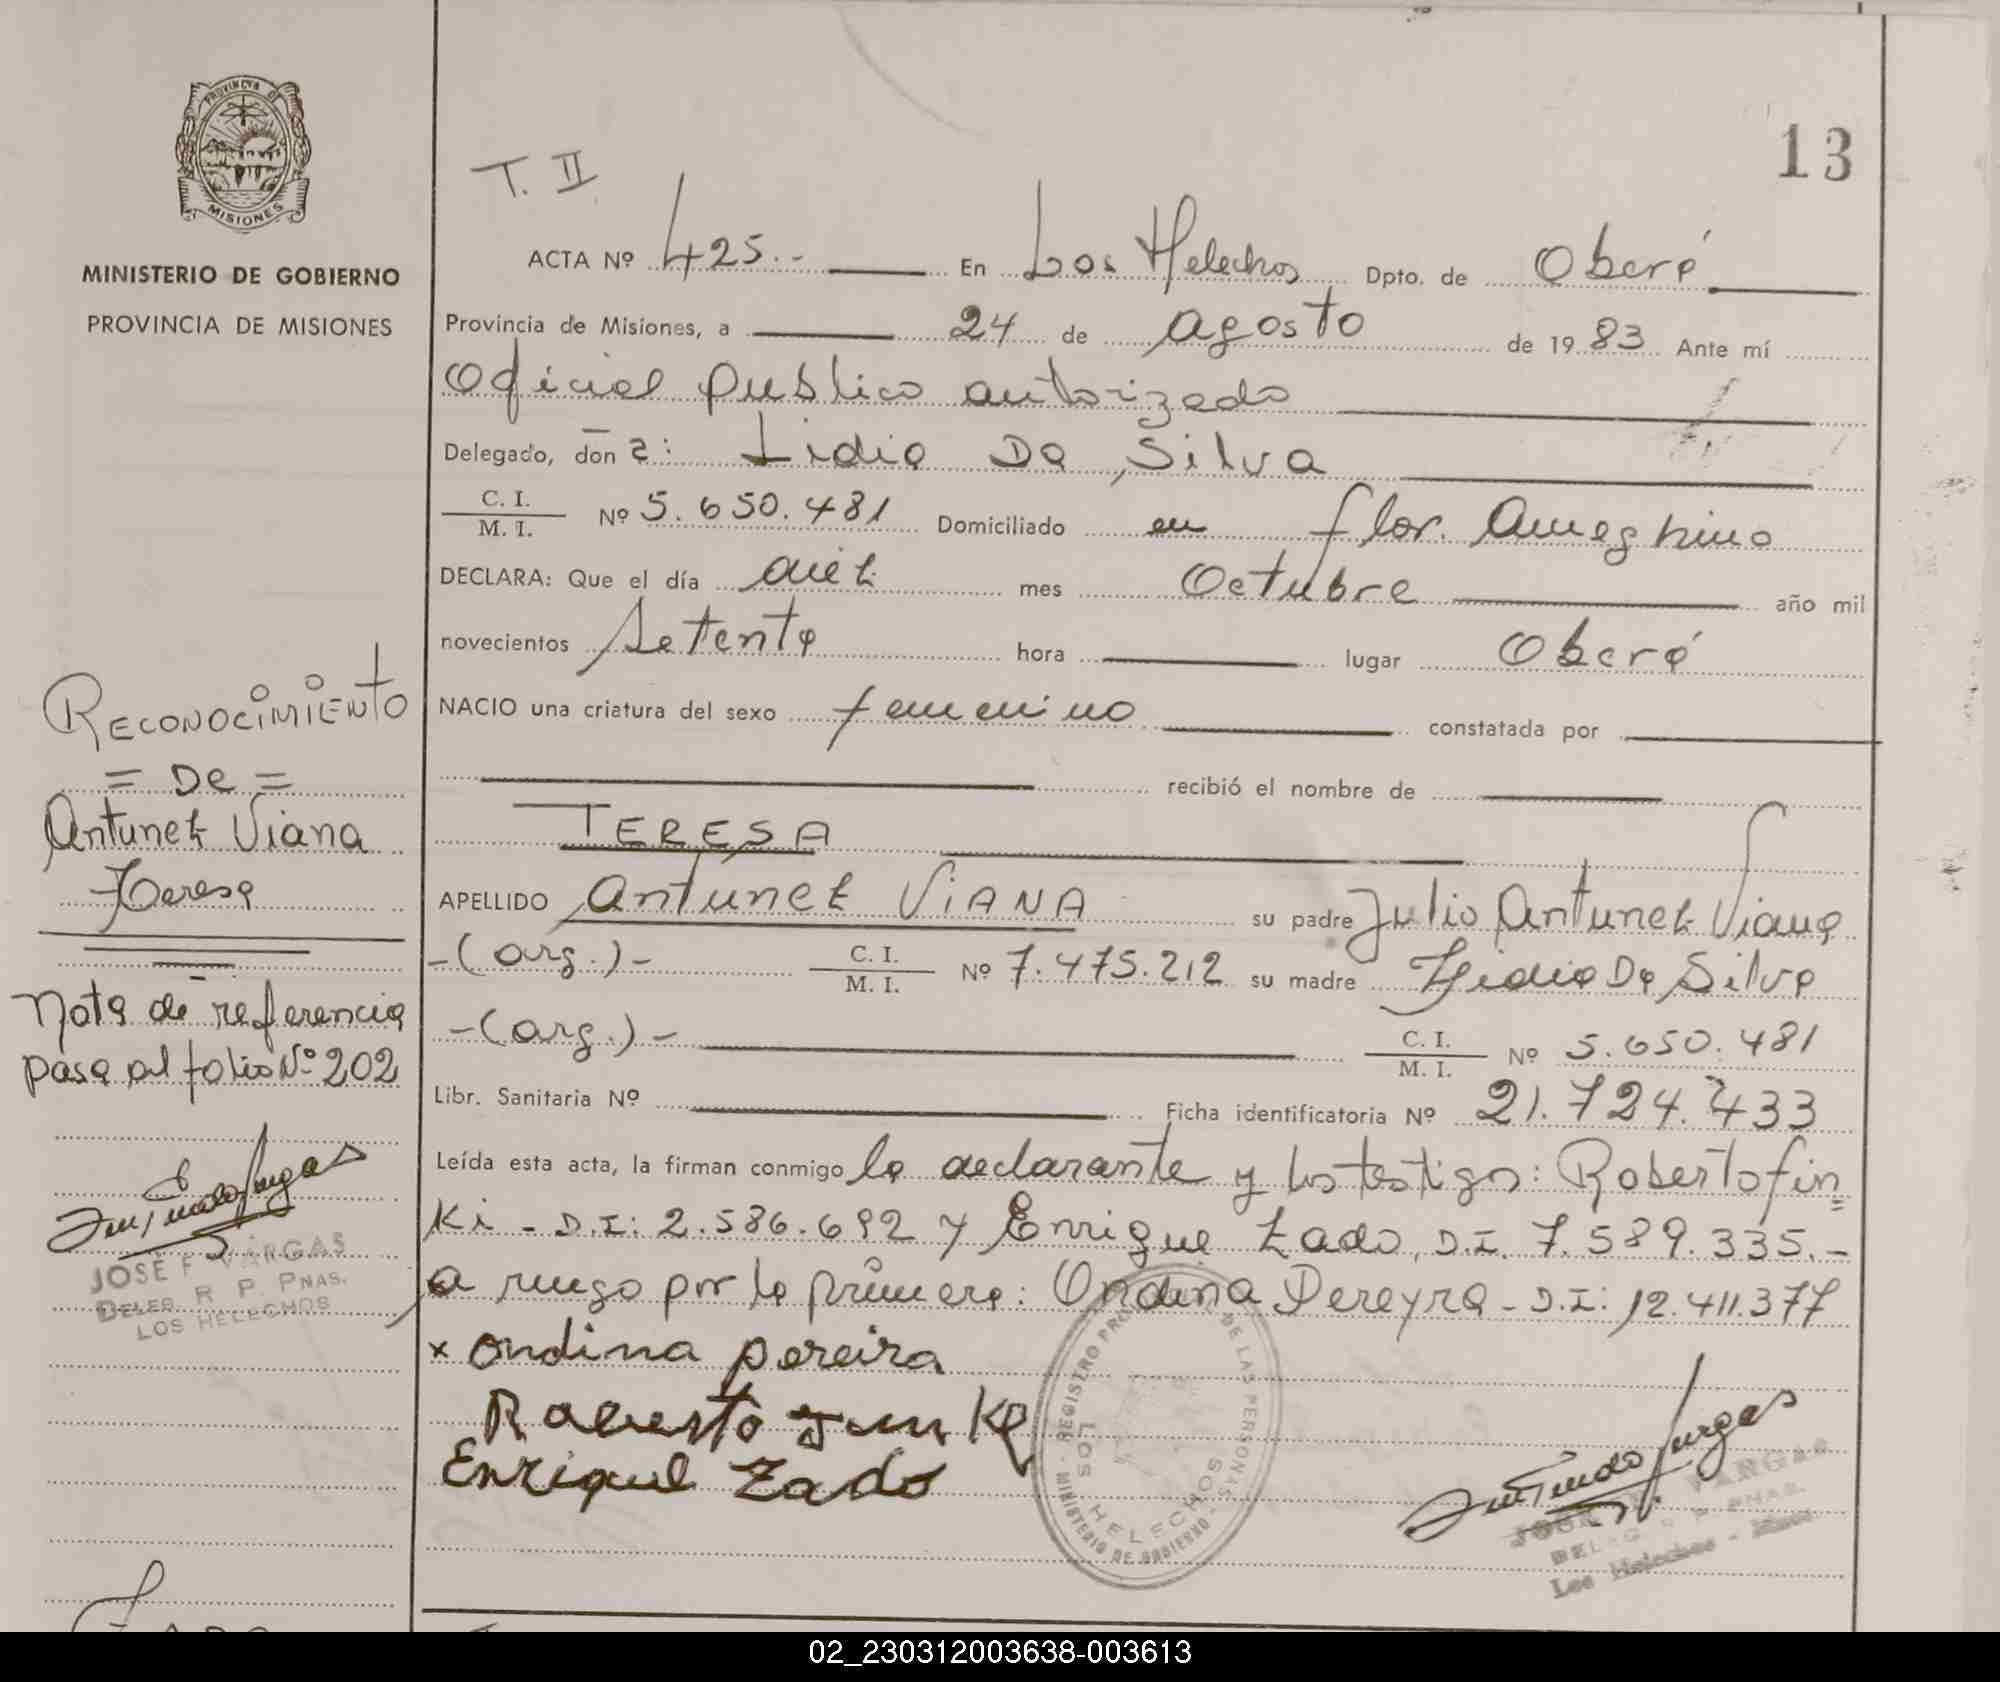 13
PROVINCIA DE
MISIONES
MINISTERIO DE GOBIERNO
PROVINCIA DE MISIONES
T. II
ACTA Nº 425.- En Los Helechos Dpto. de Oberá
Provincia de Misiones, a 24 de agosto de 1983 Ante mí
Oficial publico autorizado
Delegado, don a: Lidia Da Silva
C. I.
M. I. Nº 5.650.481 Domiciliado en flor. Ameghino
DECLARA: Que el día diez mes Octubre año mil
novecientos Setenta hora lugar Oberá
NACIO una criatura del sexo femenino constatada por
recibió el nombre de
TERESA
APELLIDO Antúnez VIANA su padre Julio Antunez Viana
-(arg.)- C. I.
M. I. Nº 7.475.212 su madre Lidia Da Silva
-(arg.)- C. I.
M. I. Nº 5.650.481
Libr. Sanitaria Nº Ficha identificatoria Nº 21.724.433
Leída esta acta, la firman conmigo la declarante y los testigos: Roberto fin=
Ki - D.I: 2.586.692 y Enrique Zado, D.I. 7.589.335.-
a ruego por la primera: Ondina Pereyra - D.I: 12.411.377
x ondina pereira
Enrique Zado
REGISTRO DE LAS PERSONAS - MINISTERIO DE GOBIERNO -
LOS HELECHOS
VARGAS
Los Helechos
RECONOCIMIENTO
= De =
Antunez Viana
Teresa
Nota de referencia
pasa al folio Nº 202
JOSÉ F VARGAS
DELEG. R P. PNAS.
LOS HELECHOS
02_230312003638-003613